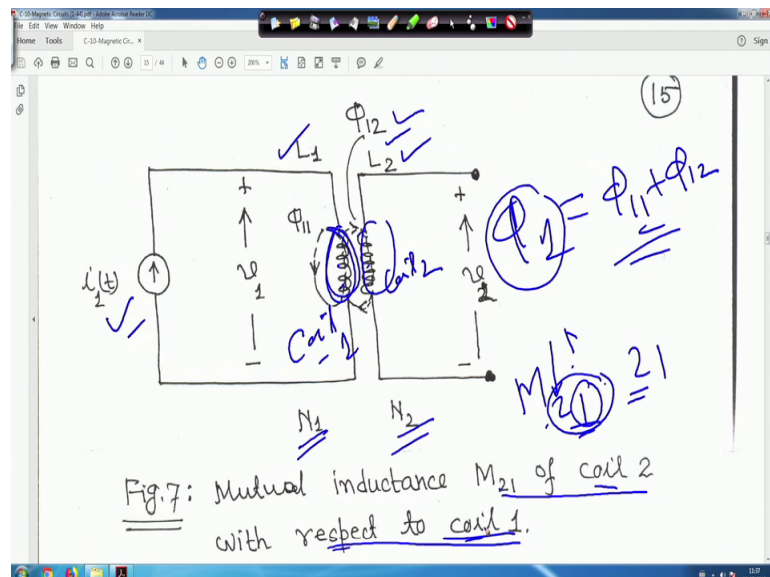 C-10-Magnetic Circuits [1-44].pdf - Adobe Acrobat Reader DC
File Edit View Window Help
Home Tools C-10-Magnetic Cir... × Sign
15 / 44 200%
15
Φ12
L1 L2
Φ1 = Φ11 + Φ12
+ +
Φ11
i1(t) v1 v2
Coil 2
Coil 1
- -
M21 21
N1 N2
Fig.7: Mutual inductance M21 of coil 2
with respect to coil 1.
11:37